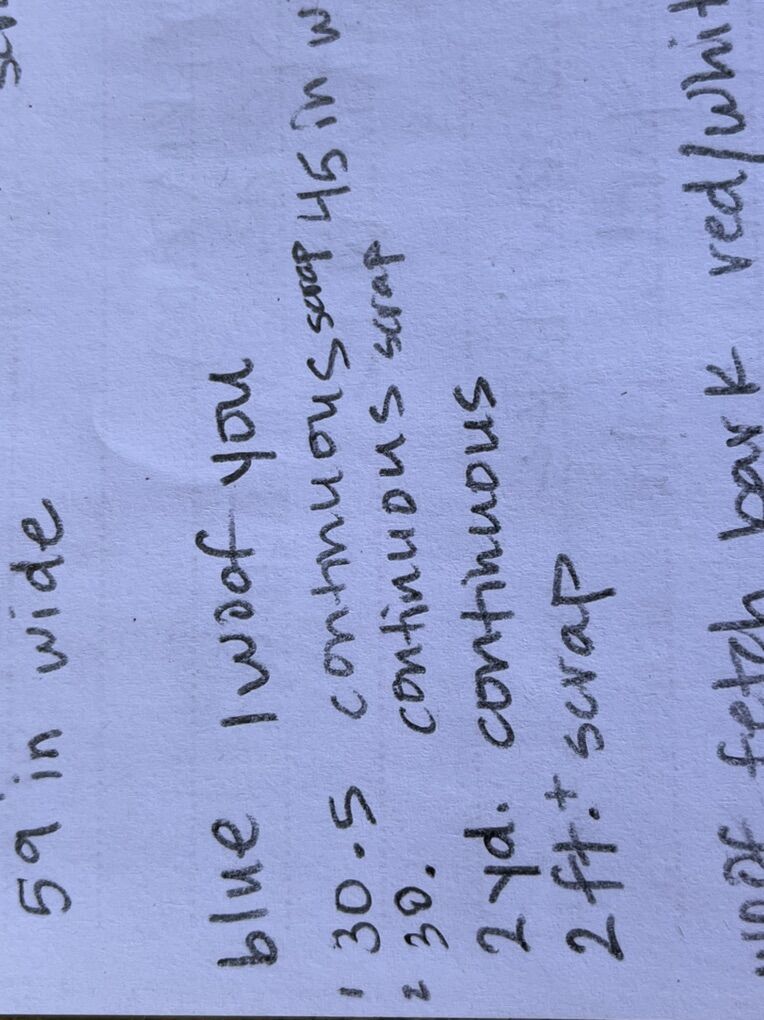 59 in wide
blue I woof you
1 30.5 continuous scrap 45 in w
2 30. continuous scrap
2 yd. continuous
2 ft.+ scrap
woof fetch bark red/whit